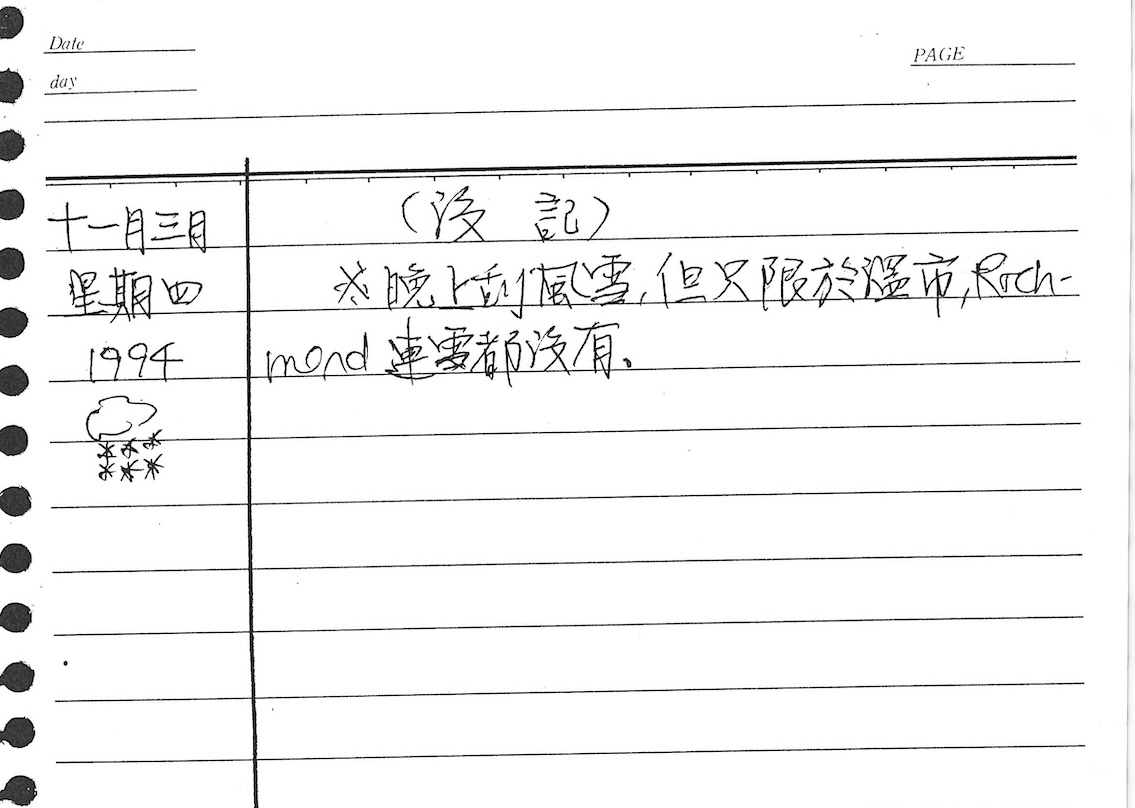 Date
day
PAGE
十一月三日
星期四
1994
(後 記)
※晚上刮風雪,但只限於溫市,Rich-
mond 連雪都沒有。